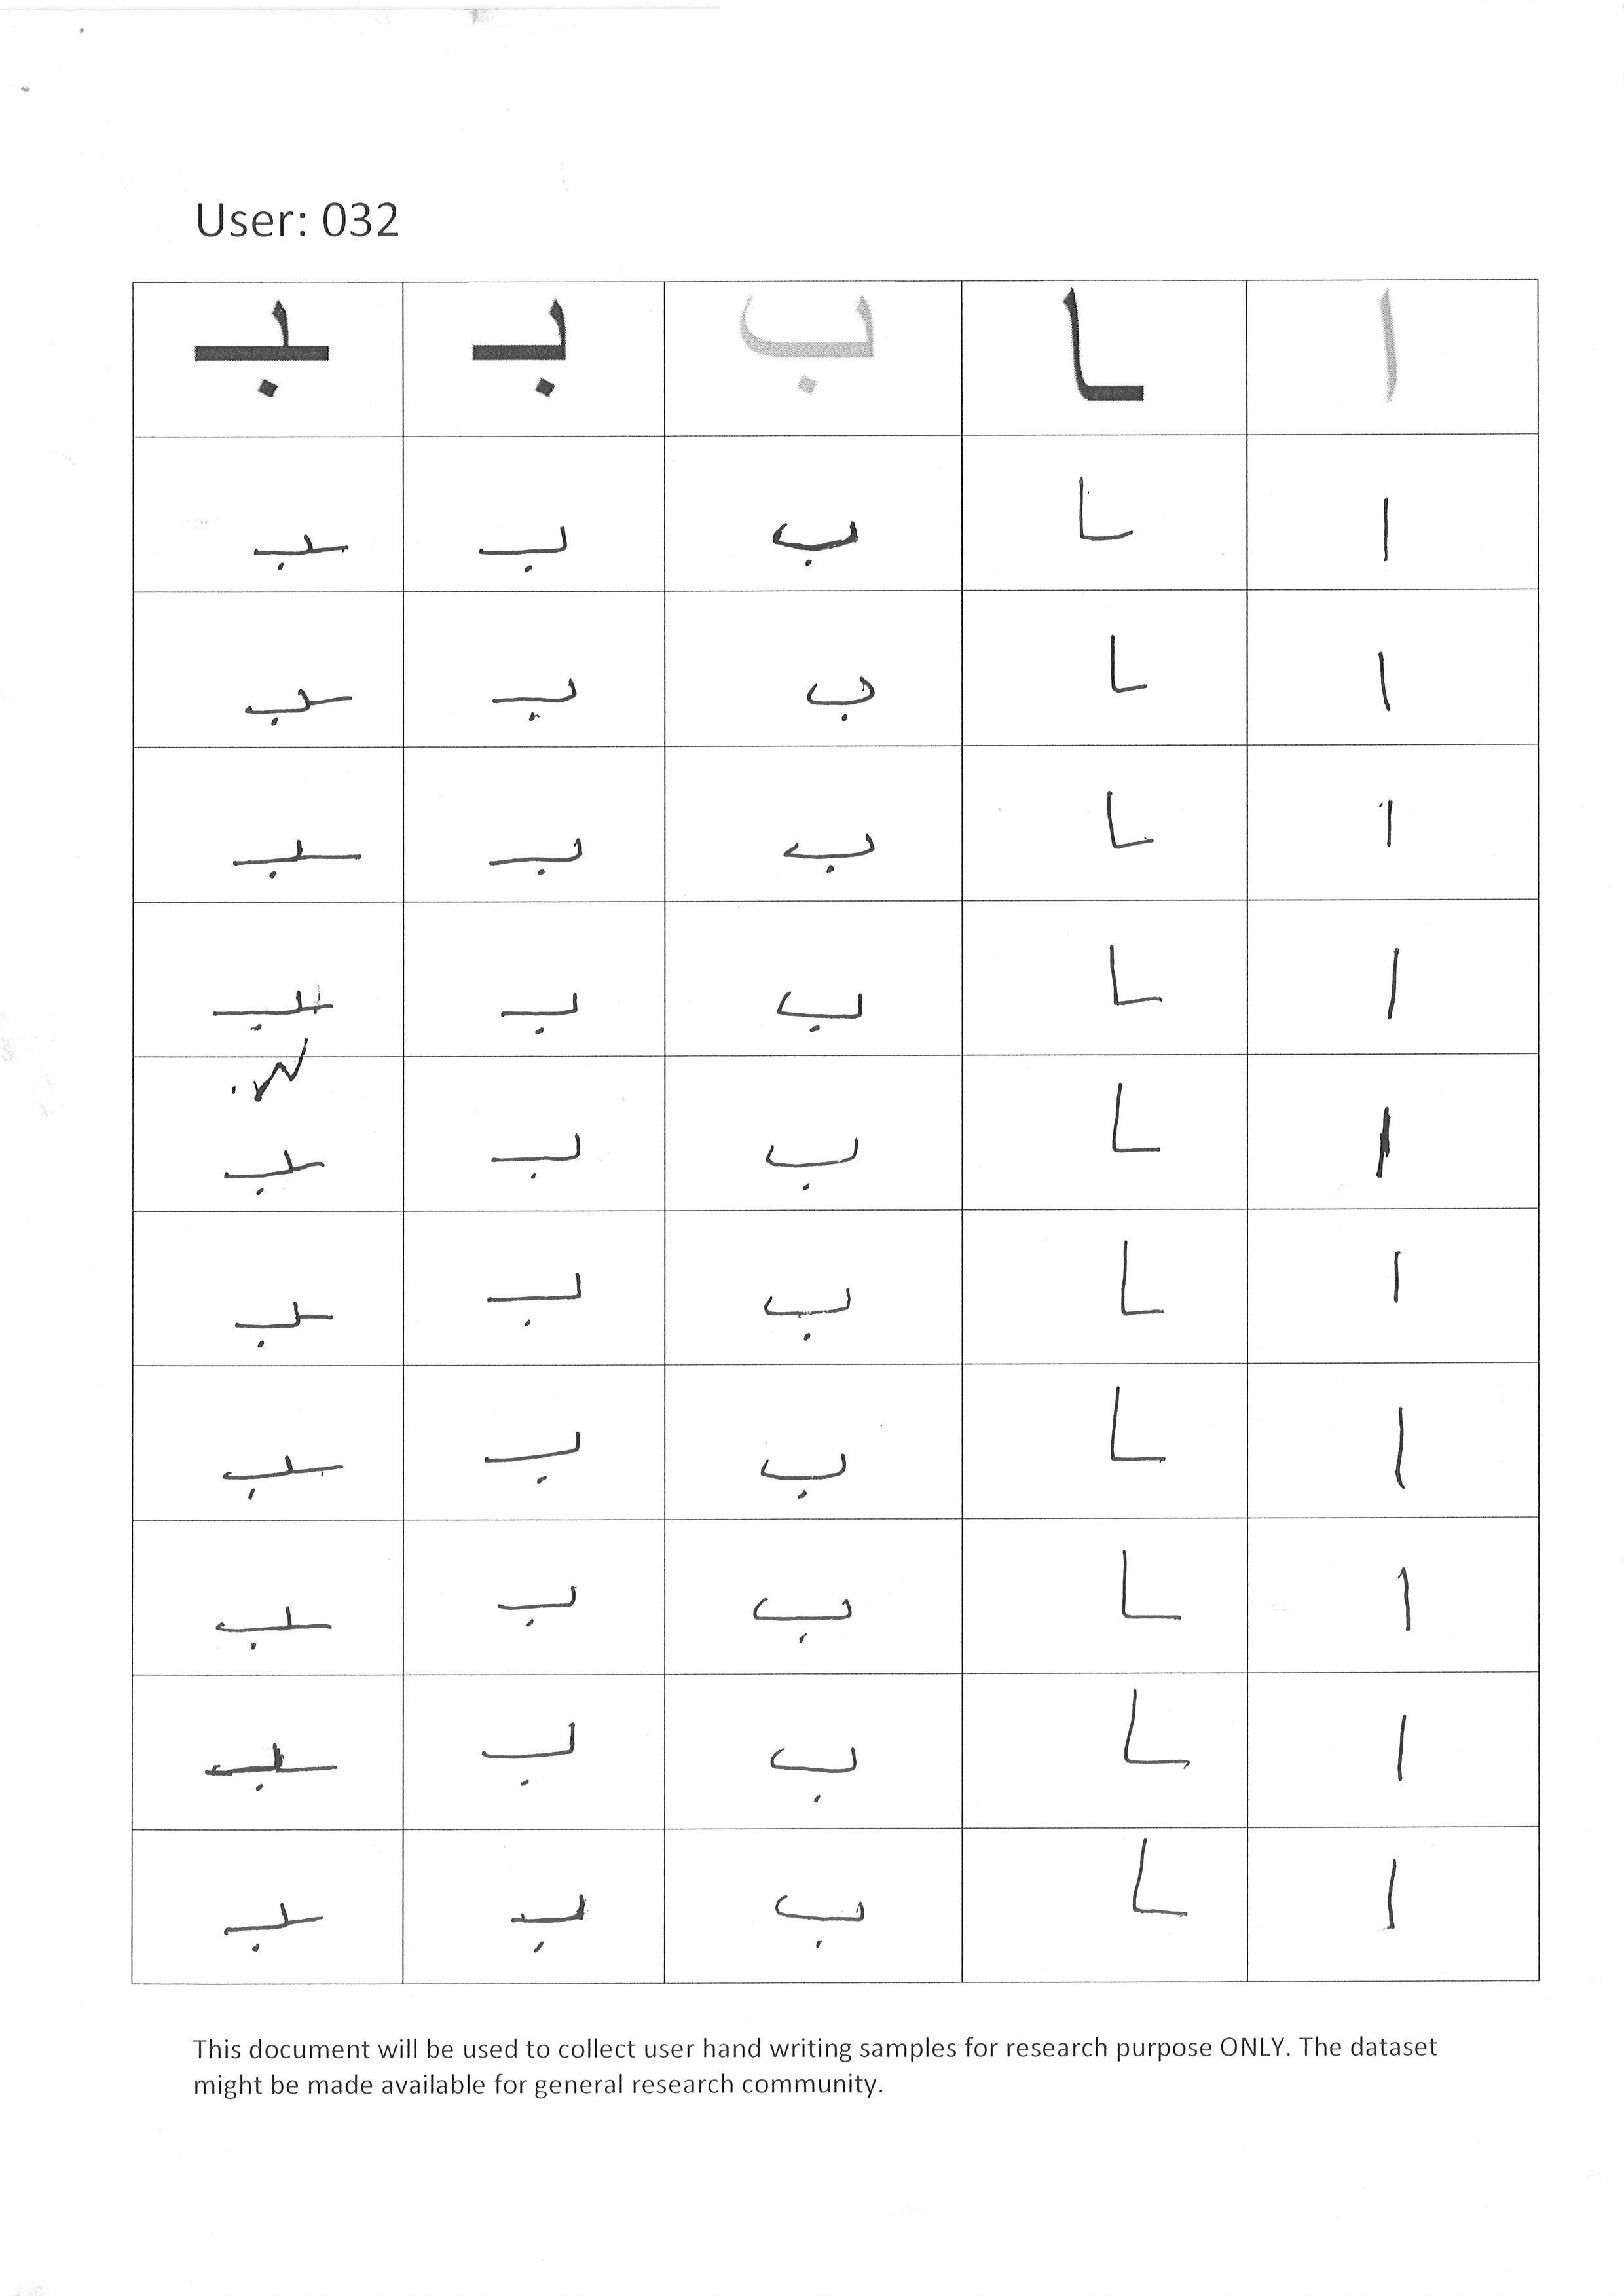 User: 032
ا ـا ب بـ ـبـ
ا ـا ب بـ ـبـ
ا ـا ب بـ ـبـ
ا ـا ب بـ ـبـ
ا ـا ب بـ ـبـ
ا ـا ب بـ ـبـ
ا ـا ب بـ ـبـ
ا ـا ب بـ ـبـ
ا ـا ب بـ ـبـ
ا ـا ب بـ ـبـ
ا ـا ب بـ ـبـ
This document will be used to collect user hand writing samples for research purpose ONLY. The dataset
might be made available for general research community.